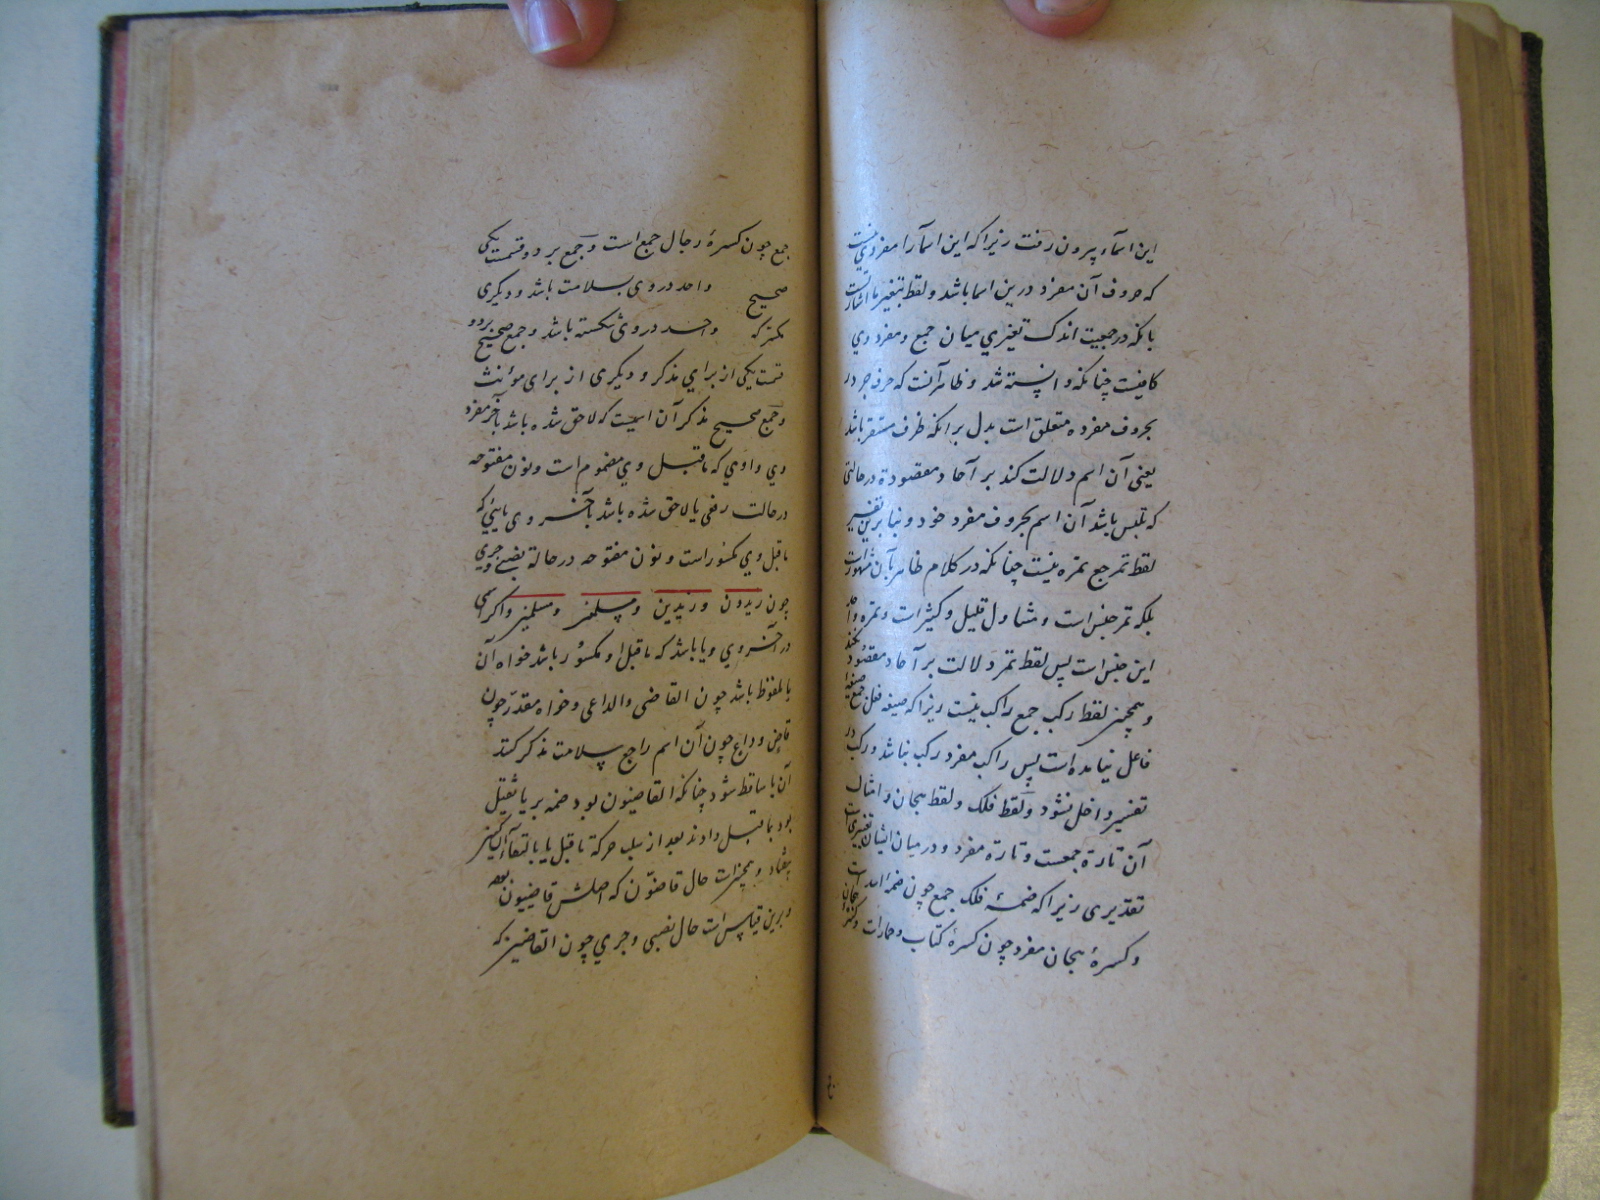 این اسماء بیرون رفت زیرا که این اسما را مفردی نیست
که حروف آن مفرد درین اسما باشد ولفظ بتغیر
بانکه در جمعیت اندک تغیری میان جمع ومفرد وی
کافیست چنانکه دانسته شد وظاهر آنست که حرف جر در
بحروف مفرده متعلق است بدل برانکه ظرف مستقر باشد
یعنی آن اسم دلالت کند بر آحاد مقصوده در حالتی
که تلبس باشد آن اسم بحروف مفرد خود وبنا برین تفسیر
لفظ تمر جمع تمره نیست چنانکه در کلام ظاهر بآن
بلکه تمر جنس است ومتناول قلیل وکثیر است وتمره واحد
این جنس است پس لفظ تمر دلالت بر آحاد مقصود نکند
وهمچنین لفظ رکب جمع راکب نیست زیرا که صیغه فعل جمع صیغه
فاعل نیامده است پس راکب مفرد رکب نباشد ورکب در
تفسیر داخل نشود ولفظ فلک ولفظ هجان وامثال
آن تارة جمعست وتارة مفرد ودر میان ایشان تغییری است
تقدیری زیرا که ضمهٔ فلک جمع چون ضمهٔ اسد است
وکسرهٔ هجان مفرد چون کسرهٔ کتاب وحمار است وکسره هجان
جمع چون کسرهٔ رجال جمع است وجمع بر دو قسمست یکی
صحیح واحد در وی بسلامت باشد ودیگری
که واحد در وی شکسته باشد وجمع صحیح بر دو
قسمت یکی از برای مذکر ودیگری از برای مؤنث
وجمع صحیح مذکر آن است که لاحق شده باشد بآخر مفرد
وی واوی که ماقبل وی مضموم است ونون مفتوحه
در حالت رفعی یا لاحق شده باشد بآخر وی یائی که
ماقبل وی مکسور است ونون مفتوحه در حالة نصبی وجری
چون زیدون وزیدین ومسلمون ومسلمین واگر اسمی
در آخر وی ویا باشد که ماقبل او مکسور باشد خواه آن
یا ملفوظ باشد چون القاضی والداعی وخواه مقدر چون
قاض وداع چون آن اسم را جمع سلامت مذکر کنند
آن یا ساقط شود چنانکه القاضیون بود ضمه بر یا ثقیل
بود بماقبل دادند بعد از سلب حرکة ماقبل یا بالتقاء الساکنین
بیفتاد وهمچنین است حال قاضون که اصلش قاضیون بود
وبرین قیاس است حال نصبی وجری چون القاضین که